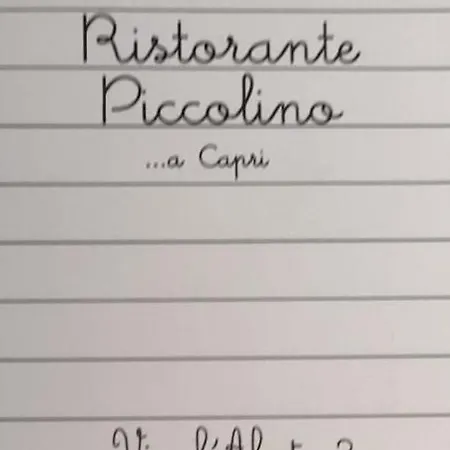 Ristorante
Piccolino
...a Capri